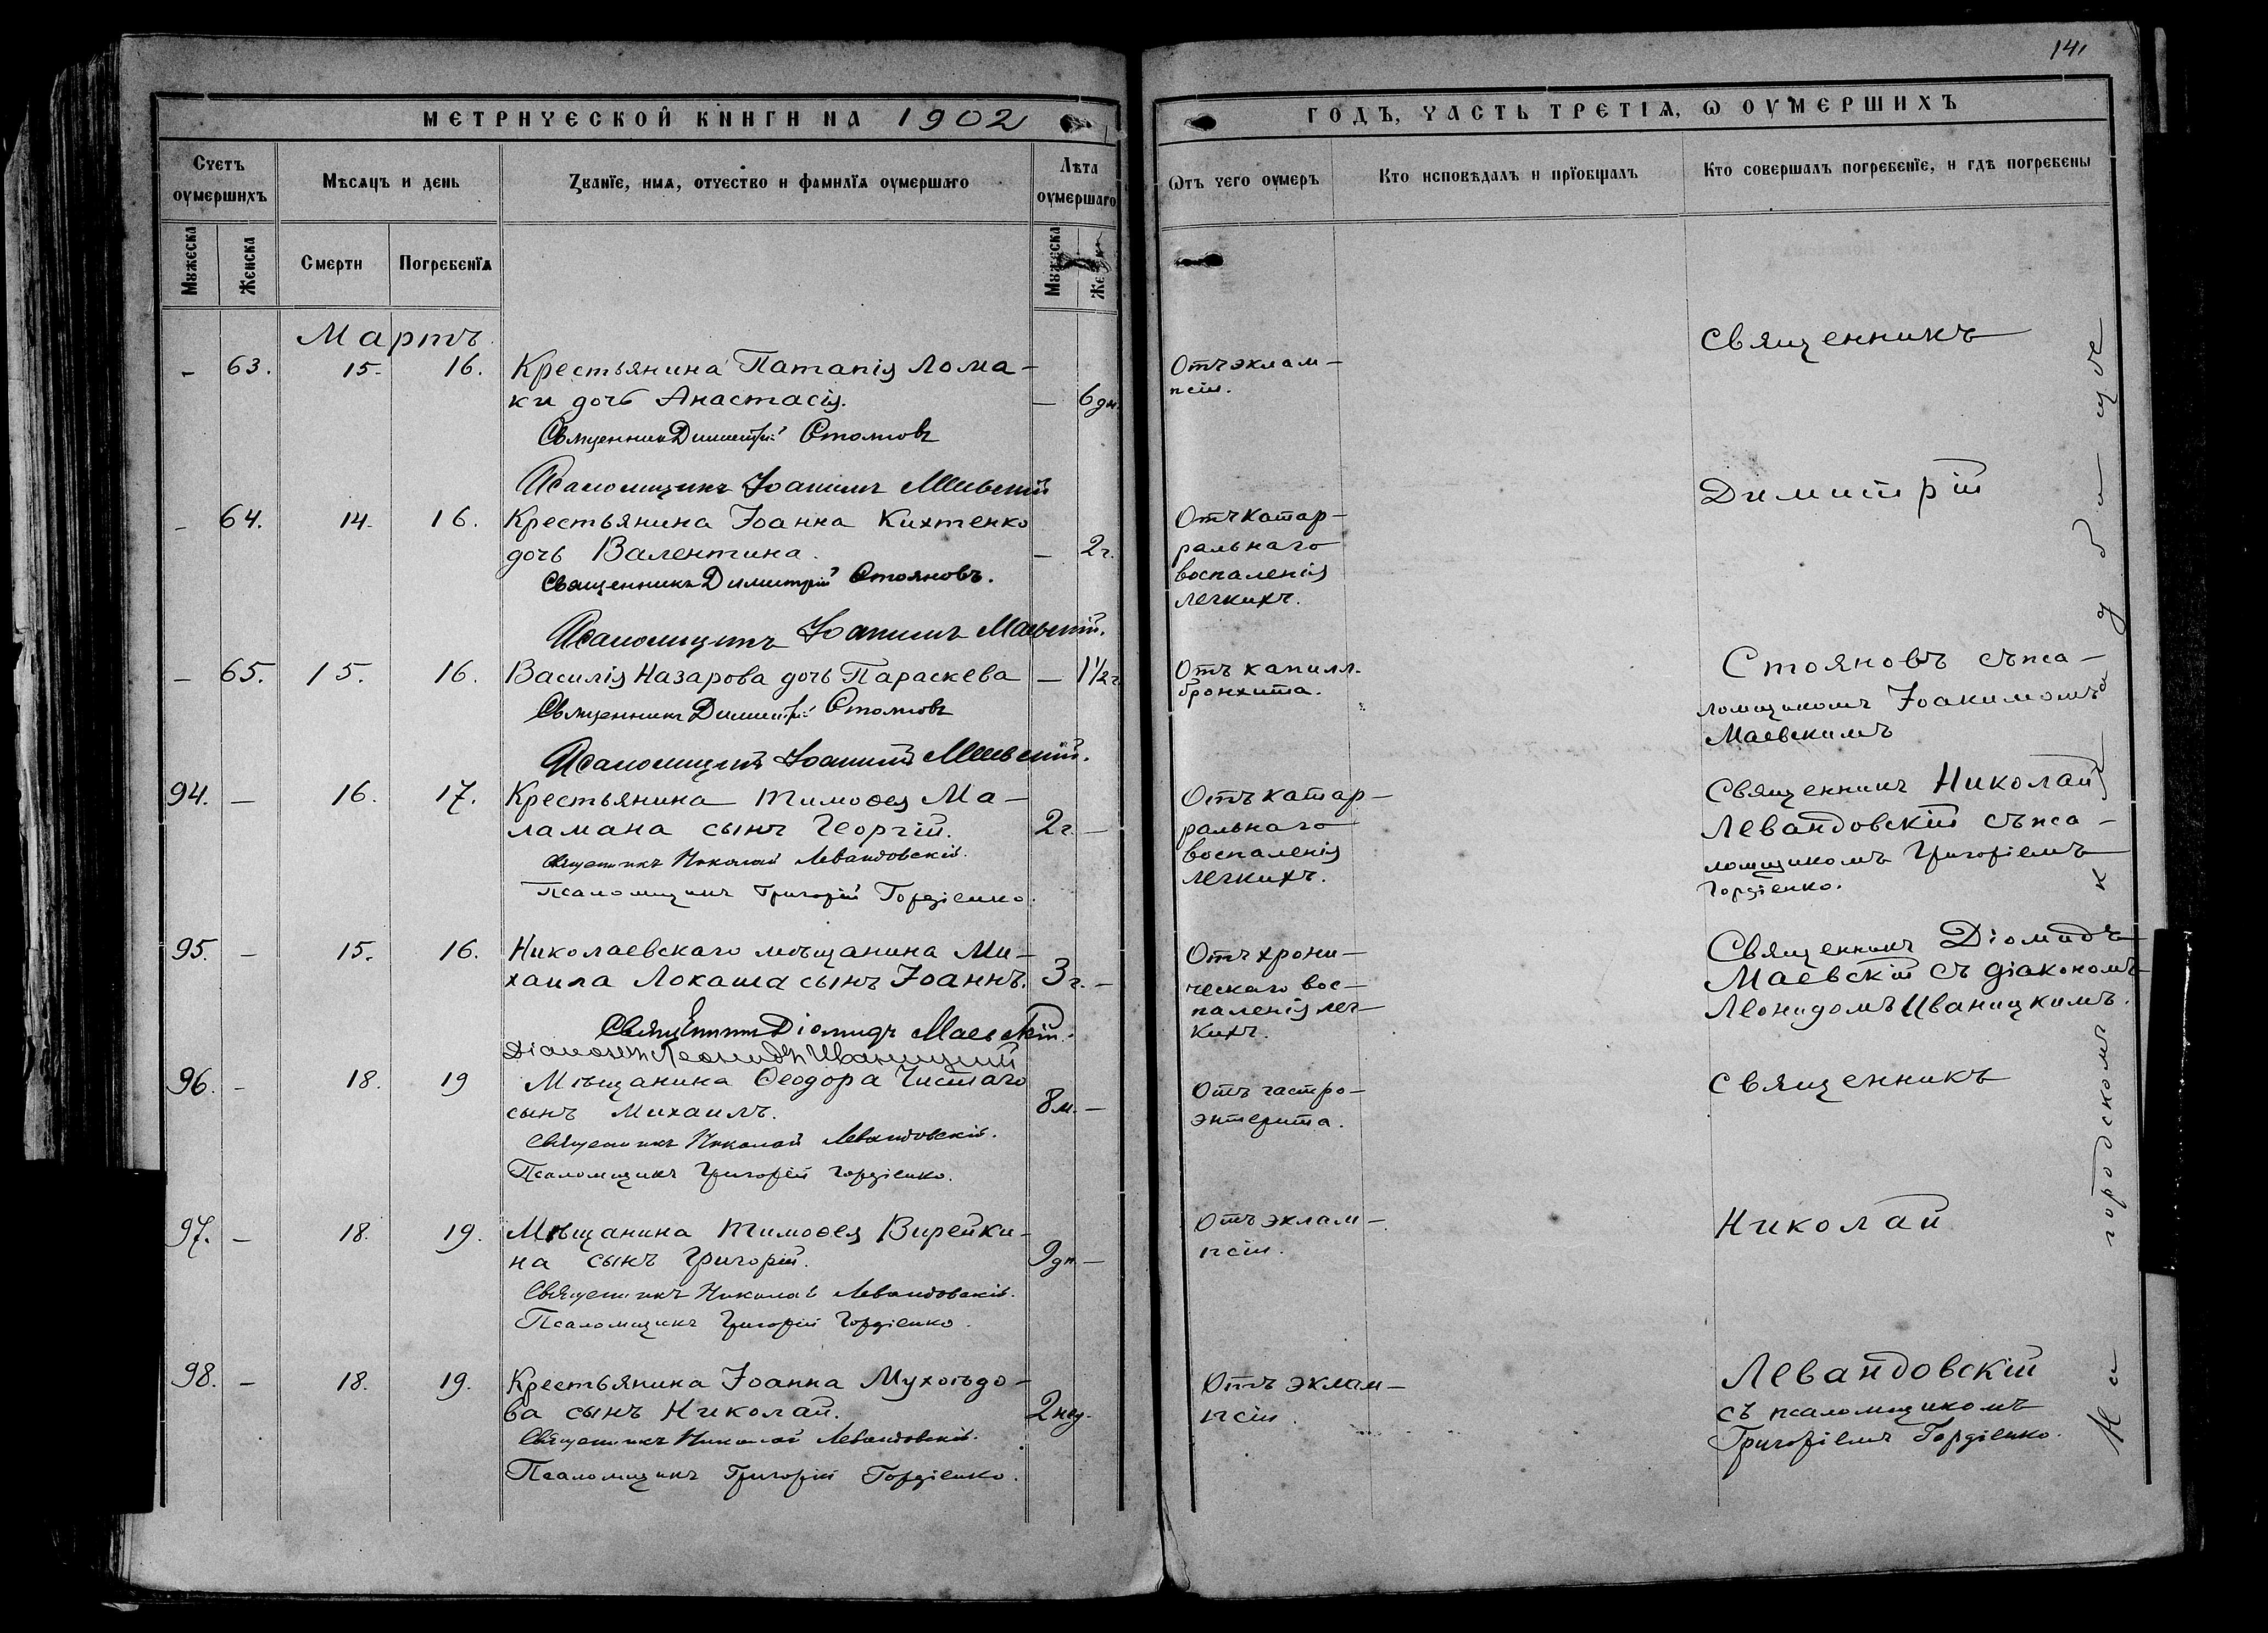 141
МЕТРИЧЕСКОЙ КНИГИ НА 1902
ГОДЪ, ЧАСТЬ ТРЕТІѦ, Ѡ ОУМЕРШИХЪ
Счетъ оумершихъ
Мѣсѧцъ и день
Званїе, имѧ, отчество и фамилїѧ оумершаго
Лѣта оумершаго
Ѿтъ чего оумеръ
Кто исповѣдалъ и прїобщалъ
Кто совершалъ погребенїе, и гдѣ погребены
Мꙋжеска
Женска
Смерти
Погребенїѧ
Мꙋжеска
Мартъ
– 63. 15. 16. Крестьянина Патапія Лома-
ки дочь Анастасія. — 6 дн.
Священникъ Димитрій Стояновъ
Псаломщикъ Іоакимъ Маевскій
Отъ эклам-
псіи.
– 64. 14. 16. Крестьянина Іоанна Кихтенко
дочь Валентина. — 2 г.
Священникъ Димитрій Стояновъ.
Псаломщикъ Іоакимъ Маевскій.
Отъ катар-
ральнаго
воспаленія
легкихъ.
– 65. 15. 16. Василія Назарова дочь Параскева — 1½ г
Священникъ Димитрій Стояновъ
Псаломщикъ Іоакимъ Маевскій.
Отъ капилл.
бронхита.
Священникъ
Димитрій
Стояновъ съ пса-
ломщикомъ Іоакимомъ
Маевскимъ
94. — 16. 17. Крестьянина Тимоѳея Ма-
ламана сынъ Георгій. 2 г. —
Священникъ Николай Левандовскій.
Псаломщикъ Григорій Гордіенко.
Отъ катар-
ральнаго
воспаленія
легкихъ.
Священникъ Николай
Левандовскій съ пса-
ломщикомъ Григоріемъ
Гордіенко.
95. – 15. 16. Николаевскаго мѣщанина Ми-
хаила Локаша сынъ Іоаннъ. 3 г. –
Священникъ Діомидъ Маевскій.
Діаконъ Леонидъ Иваницкій
Отъ хрони-
ческаго вос-
паленія лег-
кихъ.
Священникъ Діомидъ
Маевскій съ діакономъ
Леонидомъ Иваницкимъ.
96. – 18. 19 Мѣщанина Ѳеодора Чистаго
сынъ Михаилъ. 8 м. –
Священникъ Николай Левандовскій.
Псаломщикъ Григорій Гордіенко.
Отъ гастро-
энтерита.
97. – 18. 19. Мѣщанина Тимоѳея Вирейки-
на сынъ Григорій. 9 дн. –
Священникъ Николай Левандовскій.
Псаломщикъ Григорій Гордіенко.
Отъ эклам-
псіи.
98. – 18. 19. Крестьянина Іоанна Мухоѣдо-
ва сынъ Николай. 2 нед.
Священникъ Николай Левандовскій.
Псаломщикъ Григорій Гордіенко.
Отъ эклам-
псіи.
Священникъ
Николай
Левандовскій
съ псаломщикомъ
Григоріемъ Гордіенко.
На городскомъ кладбищѣ